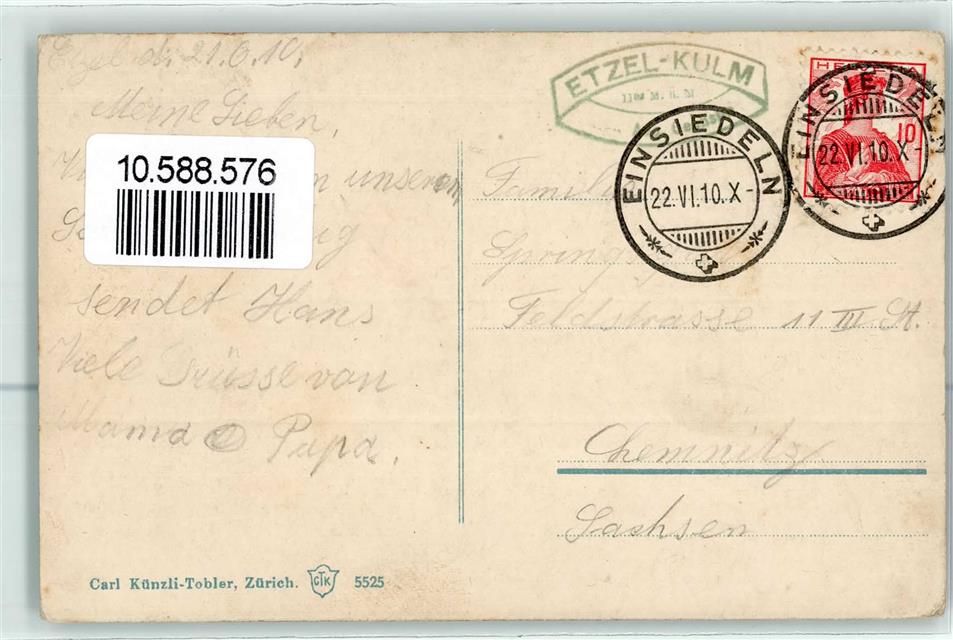 Etzel d. 21.6.10.
Meine Lieben,
unserem
sendet Hans
Viele Grüsse von
Mama Papa.
10.588.576
Carl Künzli-Tobler, Zürich. CTK 5525
ETZEL-KULM
EINSIEDELN
22.VI.10.X-
HELVETIA
10
EINSIEDELN
22.VI.10.X-
Familie
Feldstrasse 11 III St.
Chemnitz
Sachsen